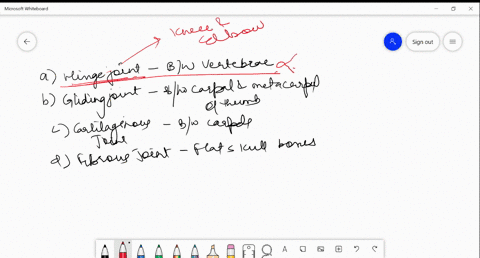 Microsoft Whiteboard
Sign out
Knee &
elbow
a) Hinge joint - B/W vertebrae
b) Gliding joint - B/W carpal & metacarpal
of thumb
c) Cartilaginous - B/W carpals
Joint
d) Fibrous joint - Flat skull bones